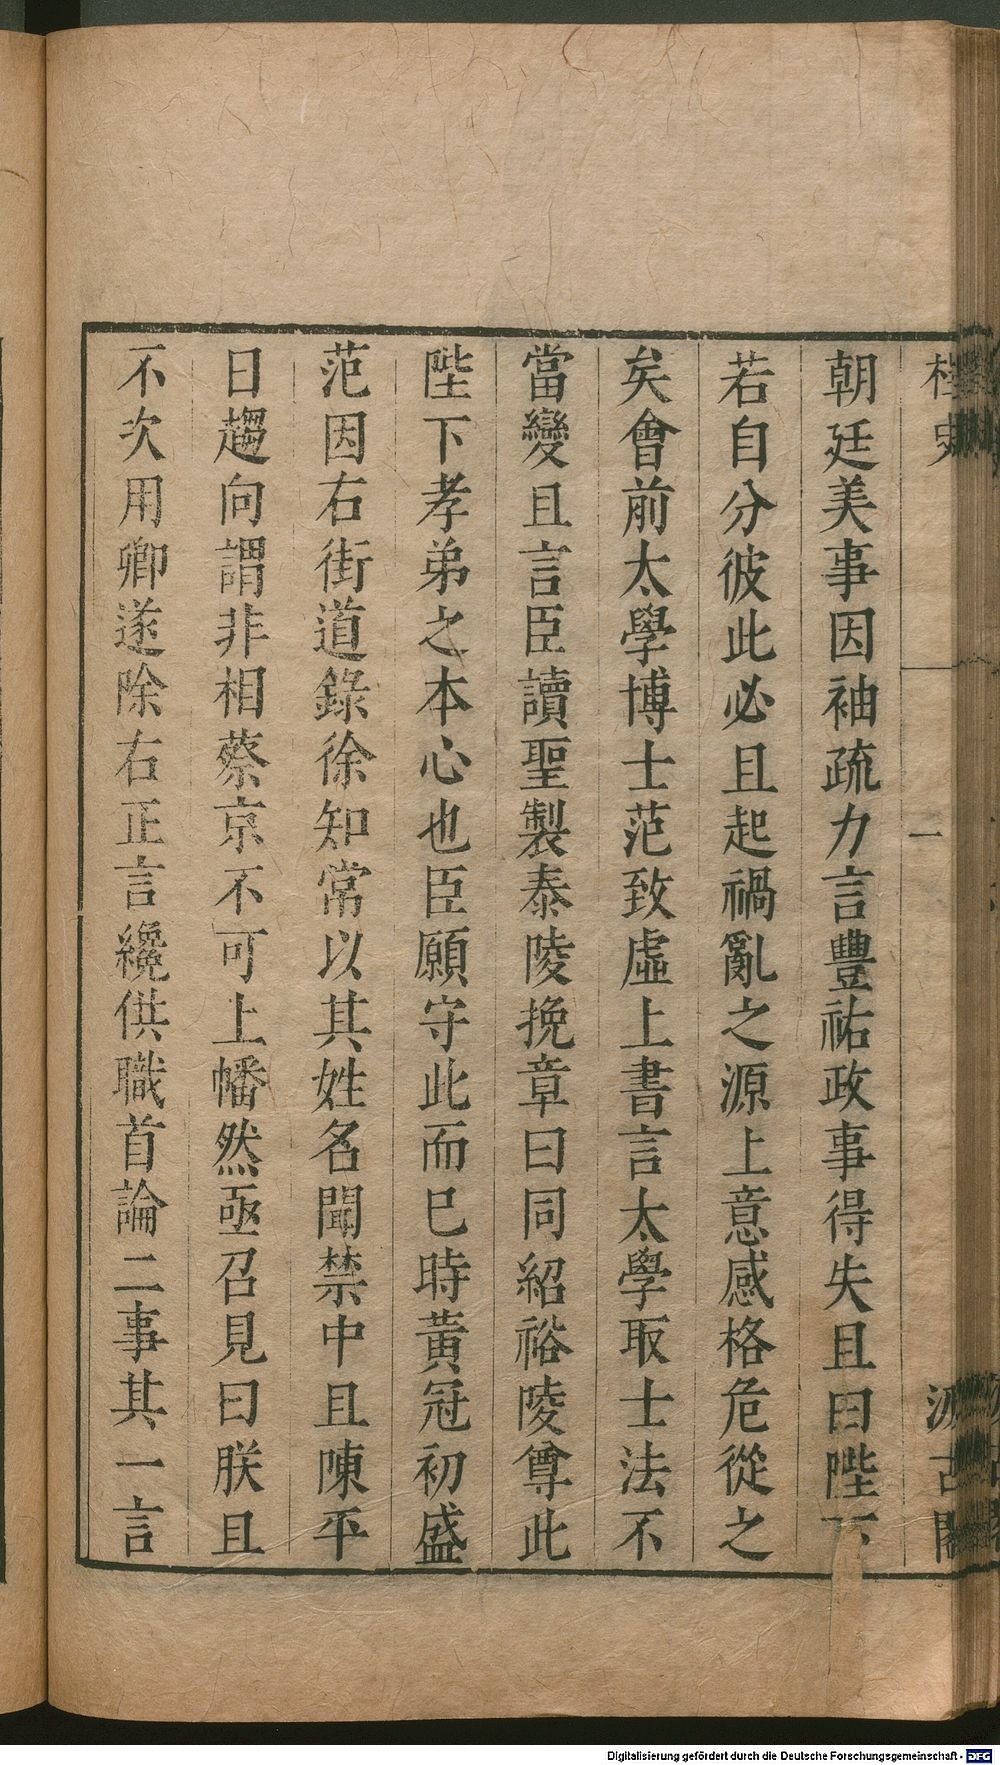 桯史
一
汲古閣
朝廷美事因袖疏力言豐祐政事得失且曰陛下
若自分彼此必且起禍亂之源上意感格危從之
矣會前太學博士范致虛上書言太學取士法不
當變且言臣讀聖製泰陵挽章曰同紹裕陵尊此
陛下孝弟之本心也臣願守此而已時黃冠初盛
范因右街道錄徐知常以其姓名聞禁中且陳平
日趨向謂非相蔡京不可上幡然亟召見曰朕且
不次用卿遂除右正言纔供職首論二事其一言
Digitalisierung gefördert durch die Deutsche Forschungsgemeinschaft - DFG